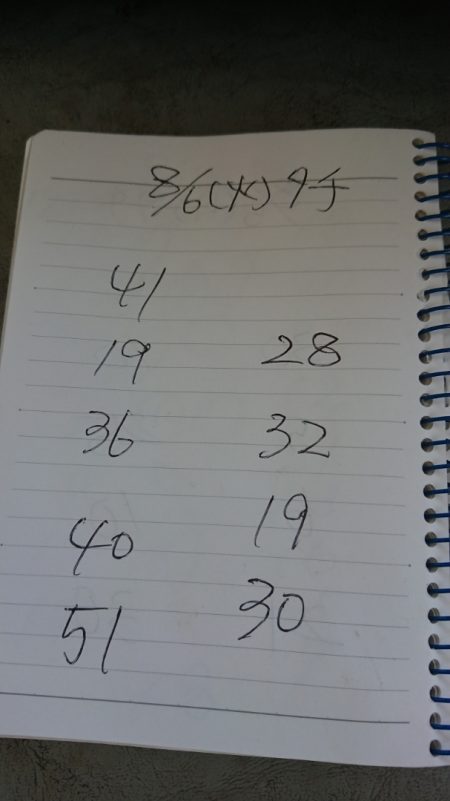 8/6(火) 9千
41
19 28
36 32
40 19
51 30